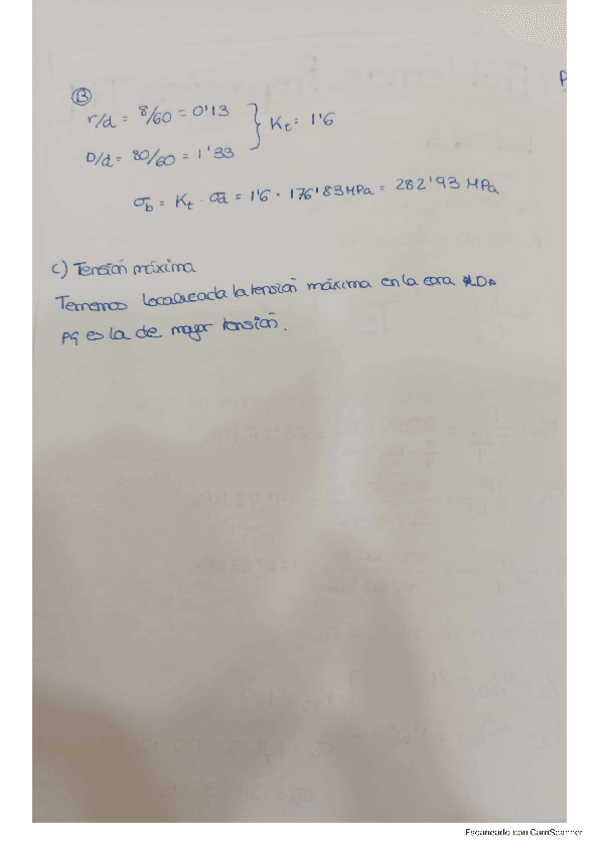 B
r/d = 8/60 = 0'13
D/d = 80/60 = 1'33
Kt = 1'6
σb = Kt · σd = 1'6 · 176'83 MPa = 282'93 MPa
c) Tensión máxima
Tenemos localizada la tensión máxima en la cara
pq es la de mayor tensión.
Escaneado con CamScanner